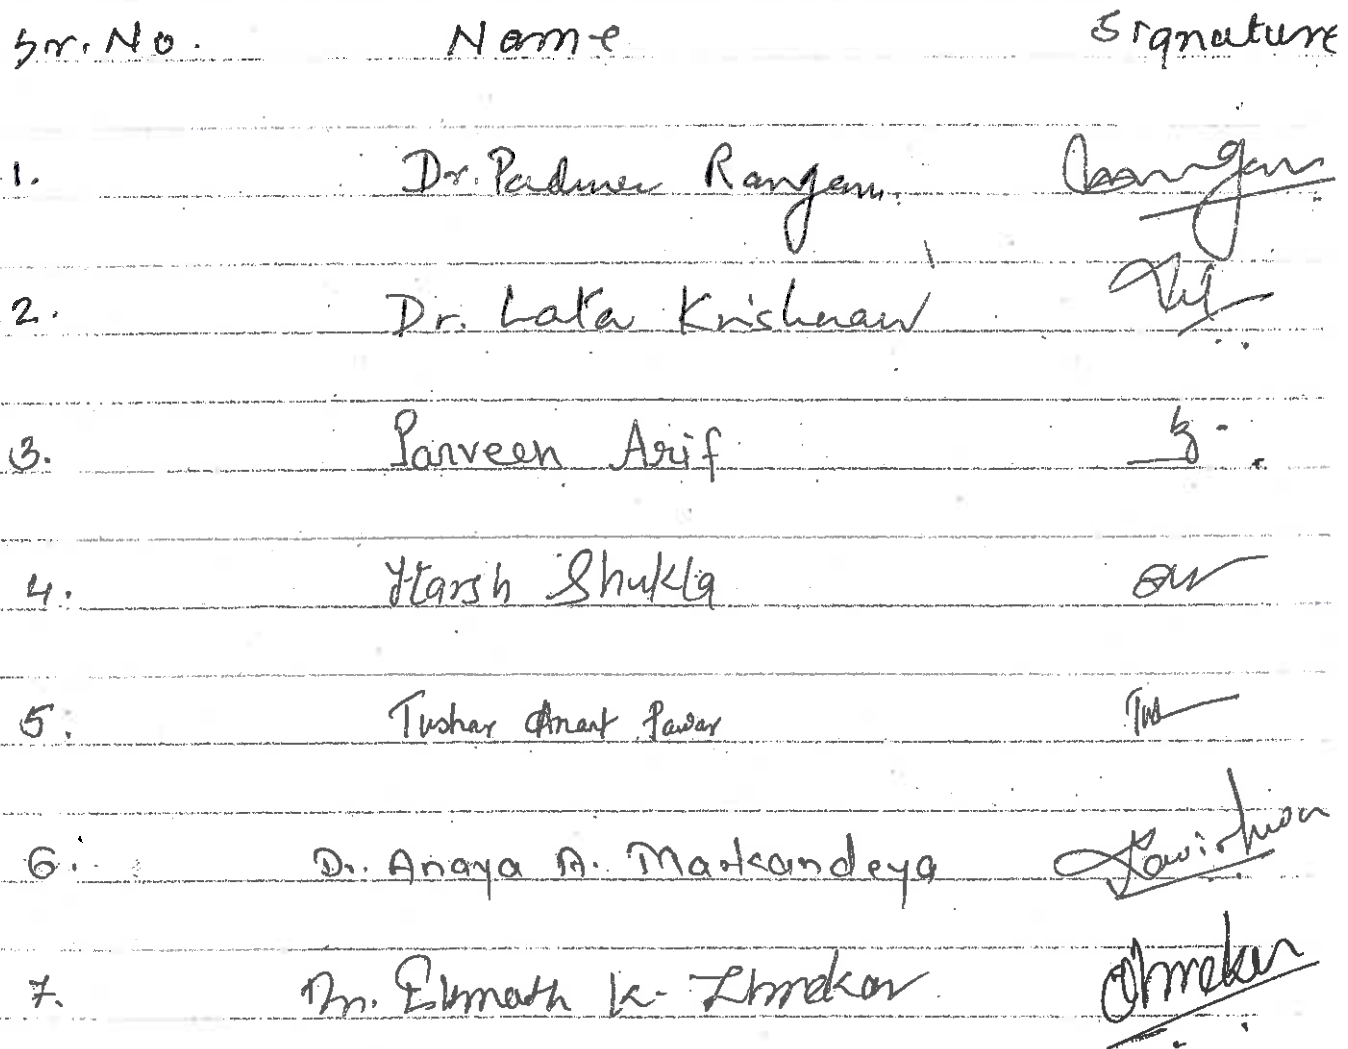 Sr. No. Name Signature
1. Dr. Padma Rangan
2. Dr. Lata Krishnan
3. Parveen Arif
4. Harsh Shukla
5. Tushar Anant Pawar Tus
6. Dr. Anaya A. Markandeya
7. Dr. Eknath K.